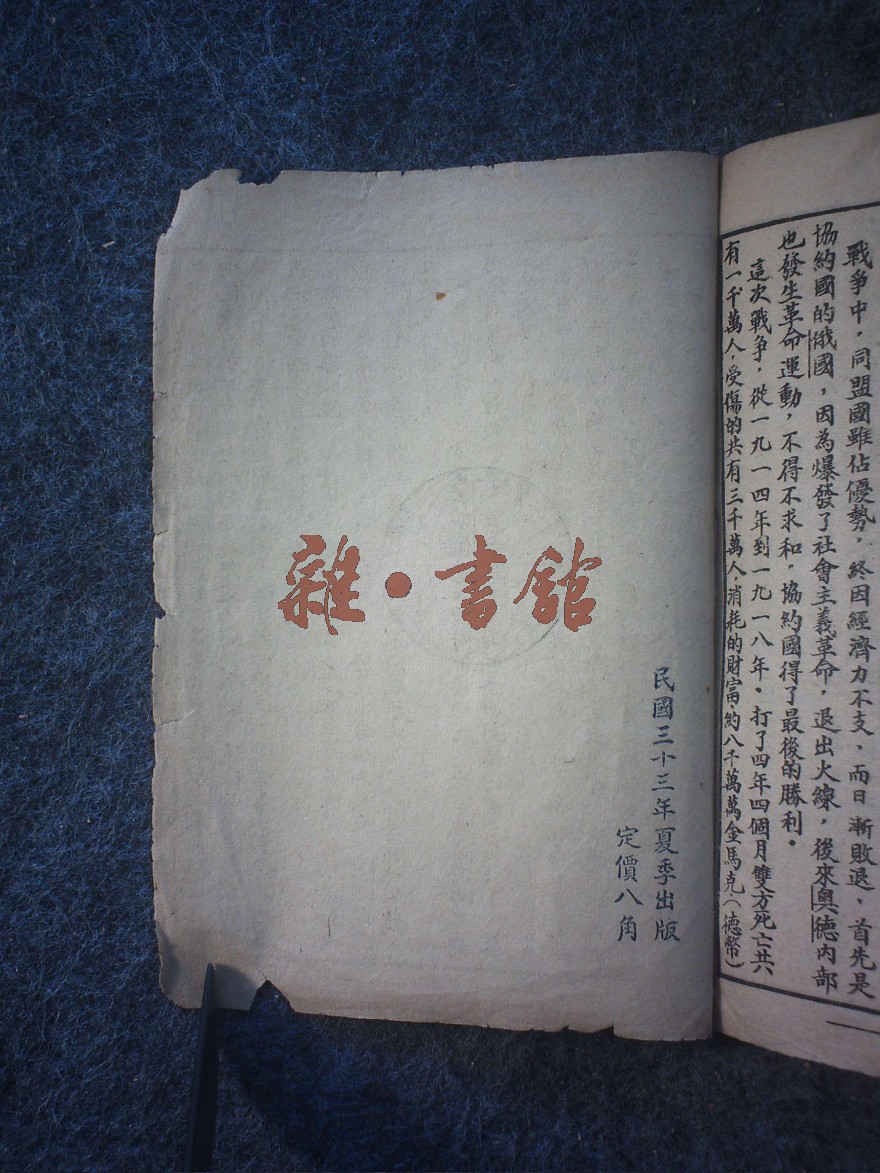 戰爭中，同盟國雖佔優勢，終因經濟力不支，而日漸敗退，首先是
協約國的俄國，因為爆發了社會主義革命，退出火線，後來奧德內部
也發生革命運動，不得不求和，協約國得了最後的勝利。
這次戰爭，從一九一四年到一九一八年。打了四年四個月雙方死亡共
有一千萬人，受傷的共有三千萬人，消耗的財富，約八千萬萬金馬克（德幣）
民國三十三年夏季出版
定價八角
雜·書館